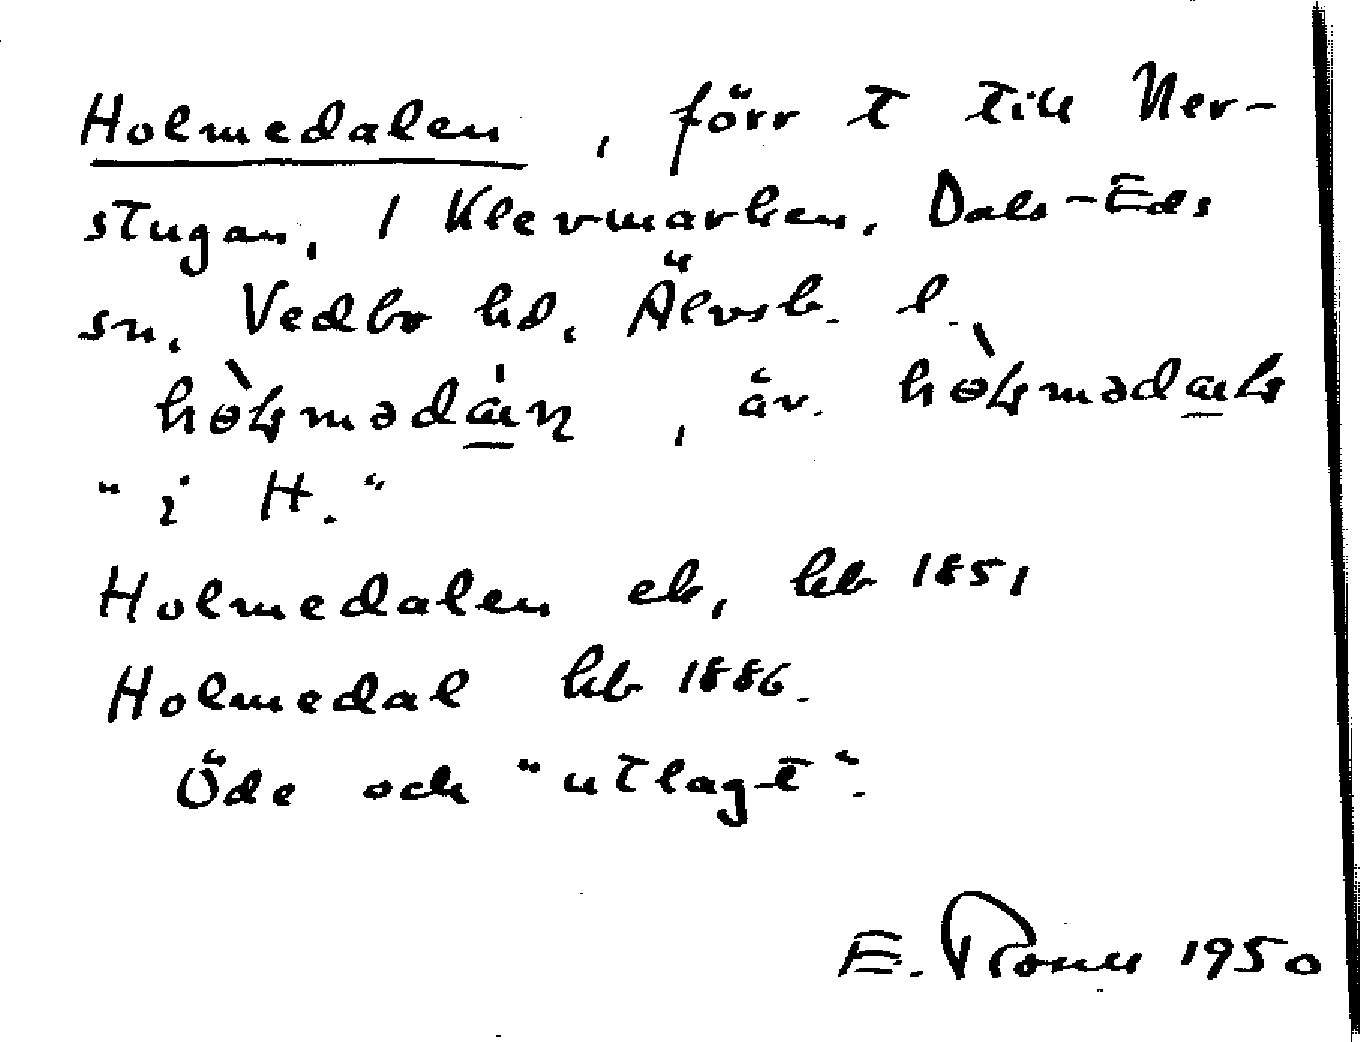 Holmedalen, förr t till Ner-
stugan, 1 Klevmarken, Dals-Eds
sn, Vedbo hd, Älvsb. l.
"i H."
Holmedalen eb, kb 1851
Holmedal kb 1886.
Öde och "utlagt".
E. 1950